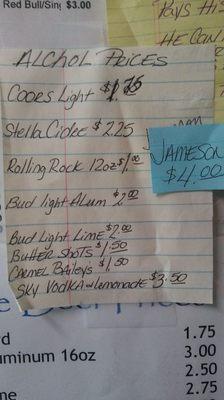 Red Bull/Sing $3.00
PAYS HIS
HE CAN
ALCHOL PRICES
COORS Light $1.75
Stella Cidre $2.25
JAMESON
$4.00
Rolling Rock 12oz $1.00
Bud light ALum $2.00
Bud Light Lime $2.00
Butter Shots $1.50
CARMEL BAileys $1.50
SKY VODKA w Lemonade $3.50
rd 1.75
uminum 16oz 3.00
2.50
ne 2.75